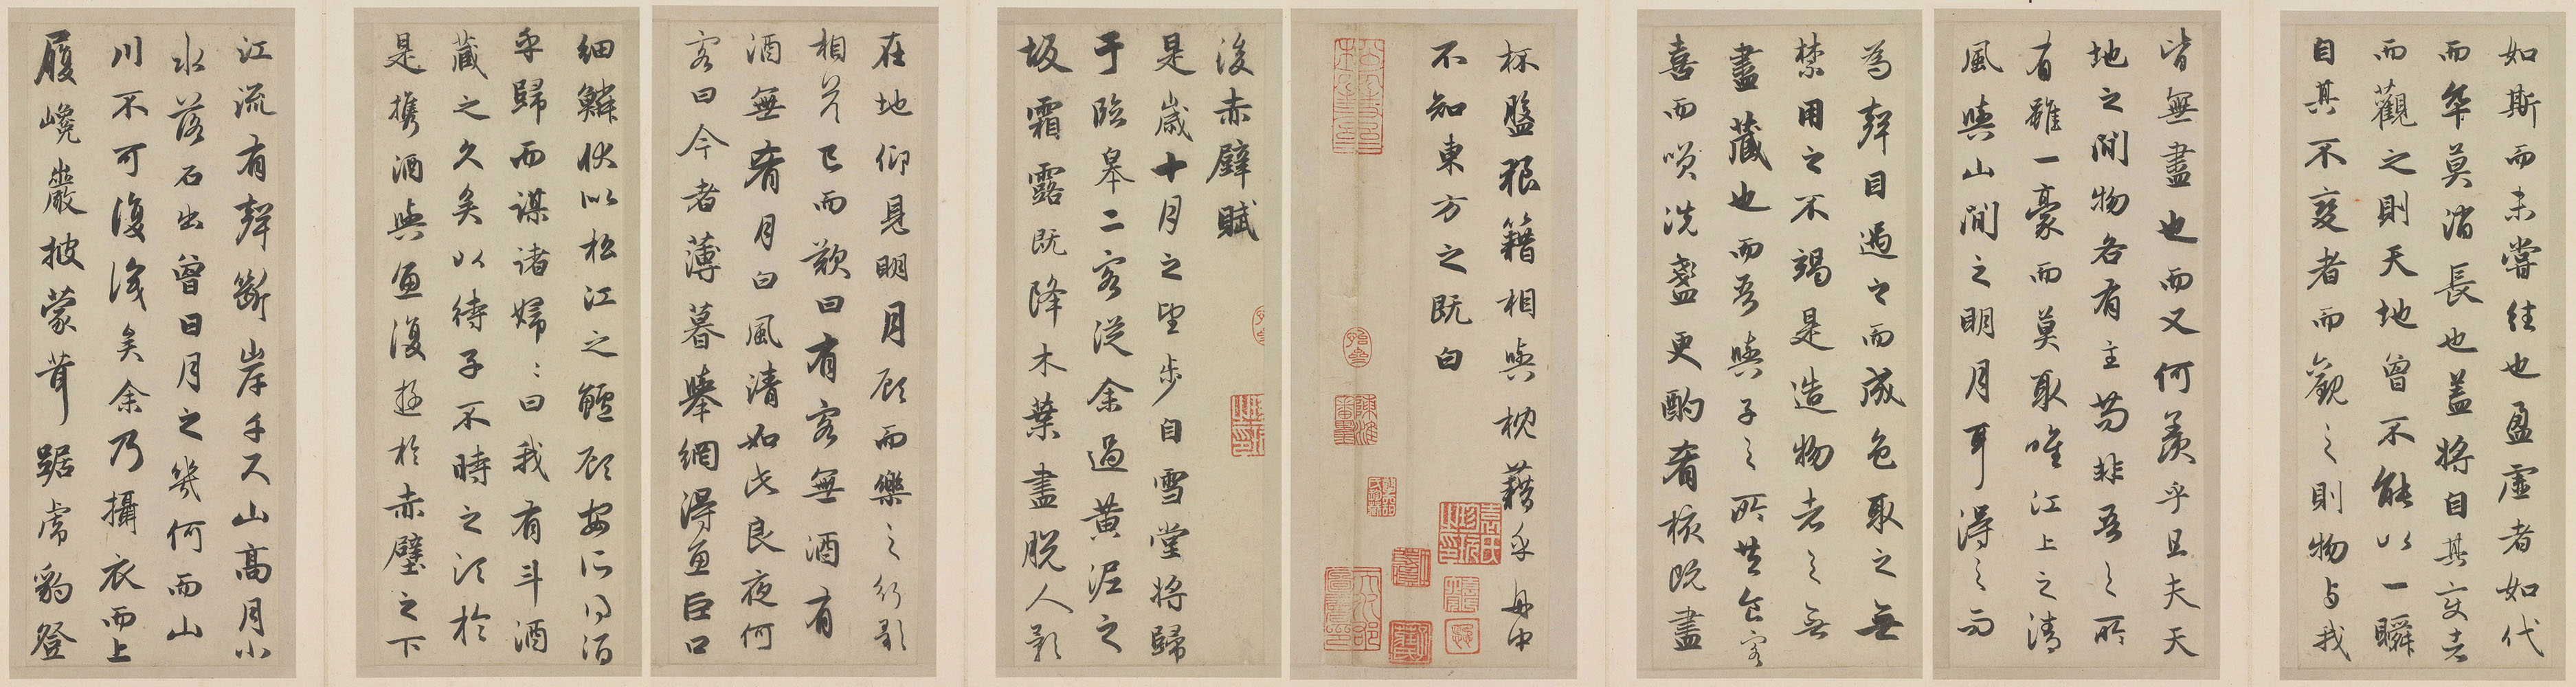 如斯而未嘗往也盈虛者如代
而卒莫消長也蓋將自其變者
而觀之則天地曾不能以一瞬
自其不變者而觀之則物與我
皆無盡也而又何羨乎且夫天
地之間物各有主苟非吾之所
有雖一豪而莫取唯江上之清
風與山間之明月耳得之而
為聲目遇之而成色取之無
禁用之不竭是造物者之無
盡藏也而吾與子之所共食客
喜而笑洗盞更酌肴核既盡
杯盤狼籍相與枕藉乎舟中
不知東方之既白
後赤壁賦
是歲十月之望步自雪堂將歸
于臨皋二客從余過黃泥之
坂霜露既降木葉盡脫人影
在地仰見明月顧而樂之行歌
相答已而歎曰有客無酒有
酒無肴月白風清如此良夜何
客曰今者薄暮舉網得魚巨口
細鱗狀似松江之鱸顧安所得酒
乎歸而謀諸婦〻曰我有斗酒
藏之久矣以待子不時之須於
是攜酒與魚復遊於赤壁之下
江流有聲斷岸千尺山高月小
水落石出曾日月之幾何而山
川不可復識矣余乃攝衣而上
履巉巖披蒙茸踞虎豹登